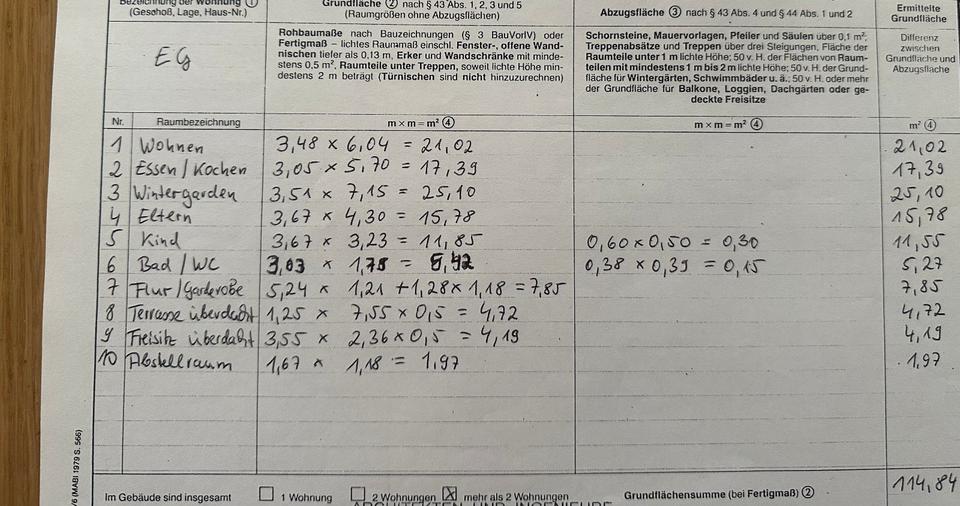 Bezeichnung der Wohnung ①
(Geschoß, Lage, Haus-Nr.)
EG
Grundfläche ② nach § 43 Abs. 1, 2, 3 und 5
(Raumgrößen ohne Abzugsflächen)
Rohbaumaße nach Bauzeichnungen (§ 3 BauVorlV) oder
Fertigmaß – lichtes Raummaß einschl. Fenster-, offene Wand-
nischen tiefer als 0,13 m, Erker und Wandschränke mit minde-
stens 0,5 m², Raumteile unter Treppen, soweit lichte Höhe min-
destens 2 m beträgt (Türnischen sind nicht hinzuzurechnen)
Abzugsfläche ③ nach § 43 Abs. 4 und § 44 Abs. 1 und 2
Schornsteine, Mauervorlagen, Pfeiler und Säulen über 0,1 m²;
Treppenabsätze und Treppen über drei Steigungen, Fläche der
Raumteile unter 1 m lichte Höhe; 50 v. H. der Flächen von Raum-
teilen mit mindestens 1 m bis 2 m lichte Höhe; 50 v. H. der Grund-
fläche für Wintergärten, Schwimmbäder u. ä.; 50 v. H. oder mehr
der Grundfläche für Balkone, Loggien, Dachgärten oder ge-
deckte Freisitze
Ermittelte
Grundfläche
Differenz
zwischen
Grundfläche und
Abzugsfläche
Nr. Raumbezeichnung m x m = m² ④ m x m = m² ④ m² ④
1 Wohnen 3,48 x 6,04 = 21,02 21,02
2 Essen / Kochen 3,05 x 5,70 = 17,39 17,39
3 Wintergarden 3,51 x 7,15 = 25,10 25,10
4 Eltern 3,67 x 4,30 = 15,78 15,78
5 Kind 3,67 x 3,23 = 11,85 0,60 x 0,50 = 0,30 11,55
6 Bad / WC 3,03 x 1,79 = 5,42 0,38 x 0,39 = 0,15 5,27
7 Flur / Garderobe 5,24 x 1,21 + 1,28 x 1,18 = 7,85 7,85
8 Terrasse überdacht 1,25 x 7,55 x 0,5 = 4,72 4,72
9 Freisitz überdacht 3,55 x 2,36 x 0,5 = 4,19 4,19
10 Abstellraum 1,67 x 1,18 = 1,97 1,97
Im Gebäude sind insgesamt 1 Wohnung 2 Wohnungen ☒ mehr als 2 Wohnungen Grundflächensumme (bei Fertigmaß) ② 114,84
(MABl 1979 S. 566)
ARCHITEKTEN UND INGENIEURE